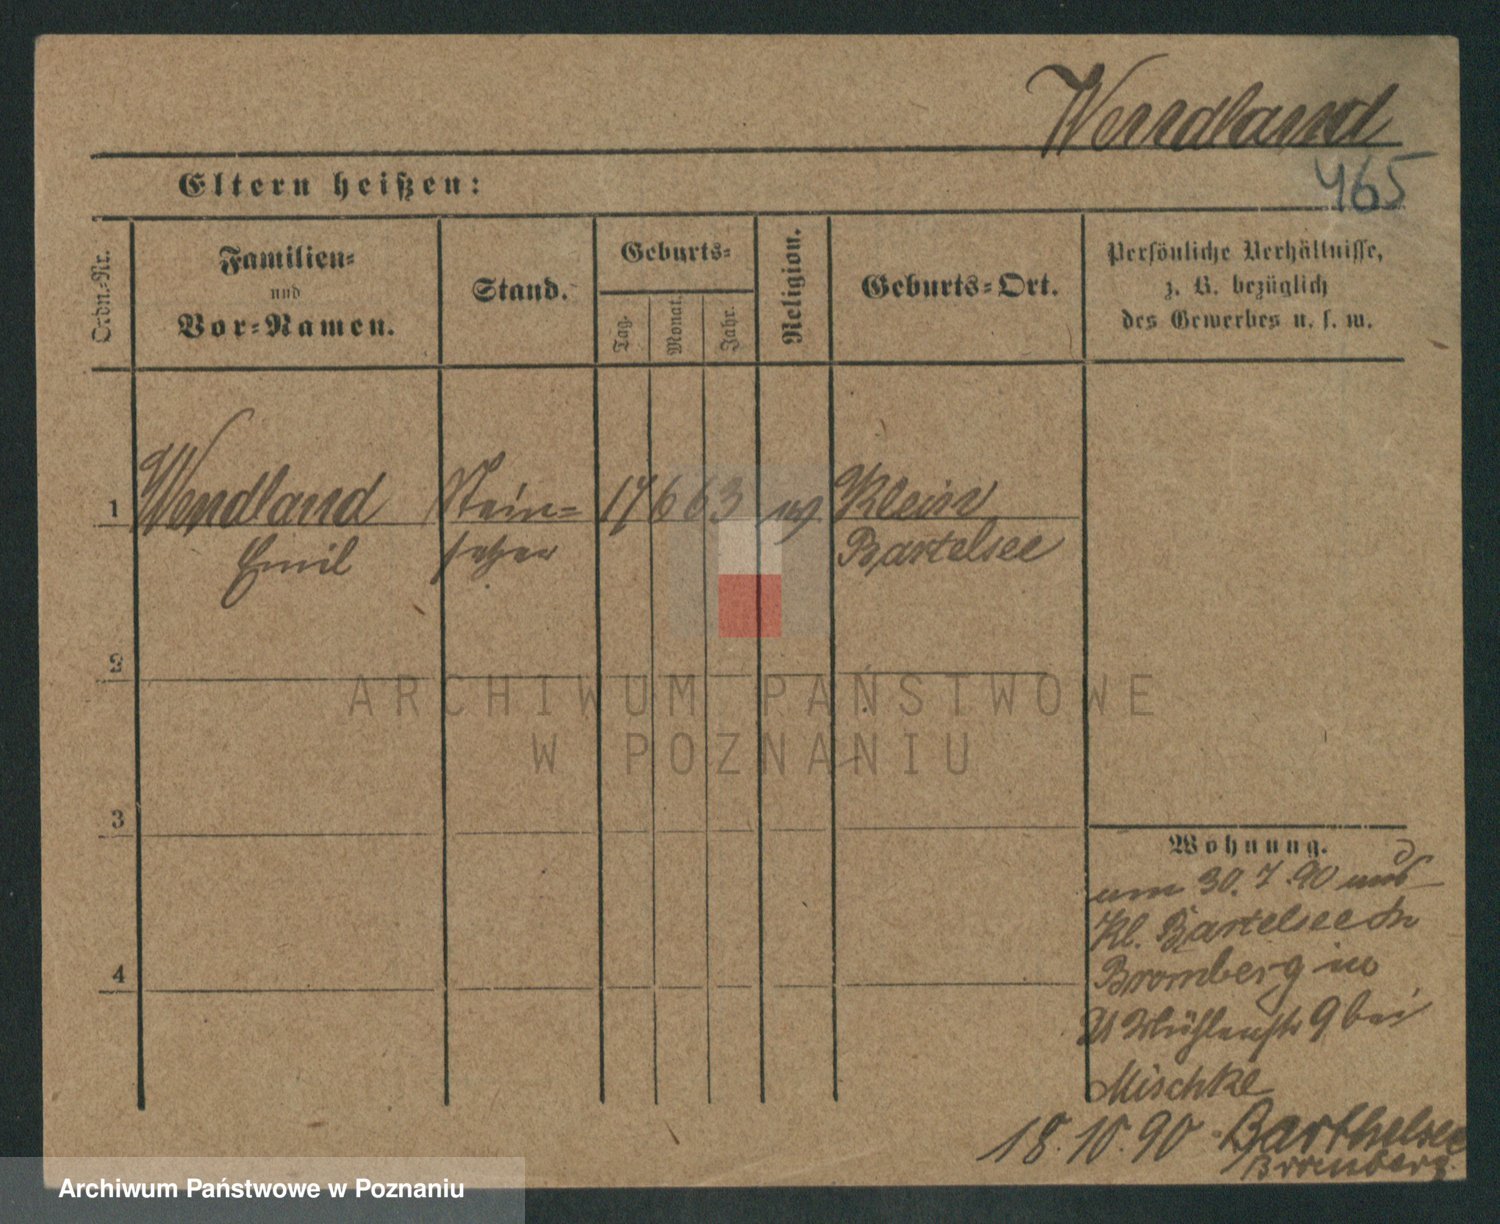 Wendland
465
Eltern heißen:
Ordn.-Nr.
Familien-
und
Vor-Namen.
Stand.
Geburts-
Tag.
Monat.
Jahr.
Religion.
Geburts-Ort.
Persönliche Verhältnisse,
z. B. bezüglich
des Gewerbes u. s. w.
1
Wendland
Emil
Stein-
setzer
17 6 63
Klein
Bartelsee
2
3
4
ARCHIWUM PAŃSTWOWE
W POZNANIU
Wohnung.
am 30.7.90 aus
Kl. Bartelsee
Bromberg
Mühlenstr 9 bei
Mischke
18.10.90 Barthelsee
Bromberg.
Archiwum Państwowe w Poznaniu